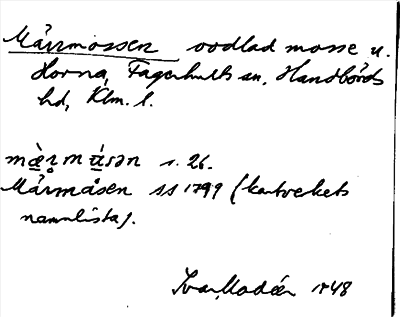 Märrmossen oodlad mosse u.
Horna, Fagerhults sn, Handbörds
hd, Klm. l.
s. 26.
Märmåsen SS 1799 (kartverkets
namnlista).
Ivar Modéer 1948